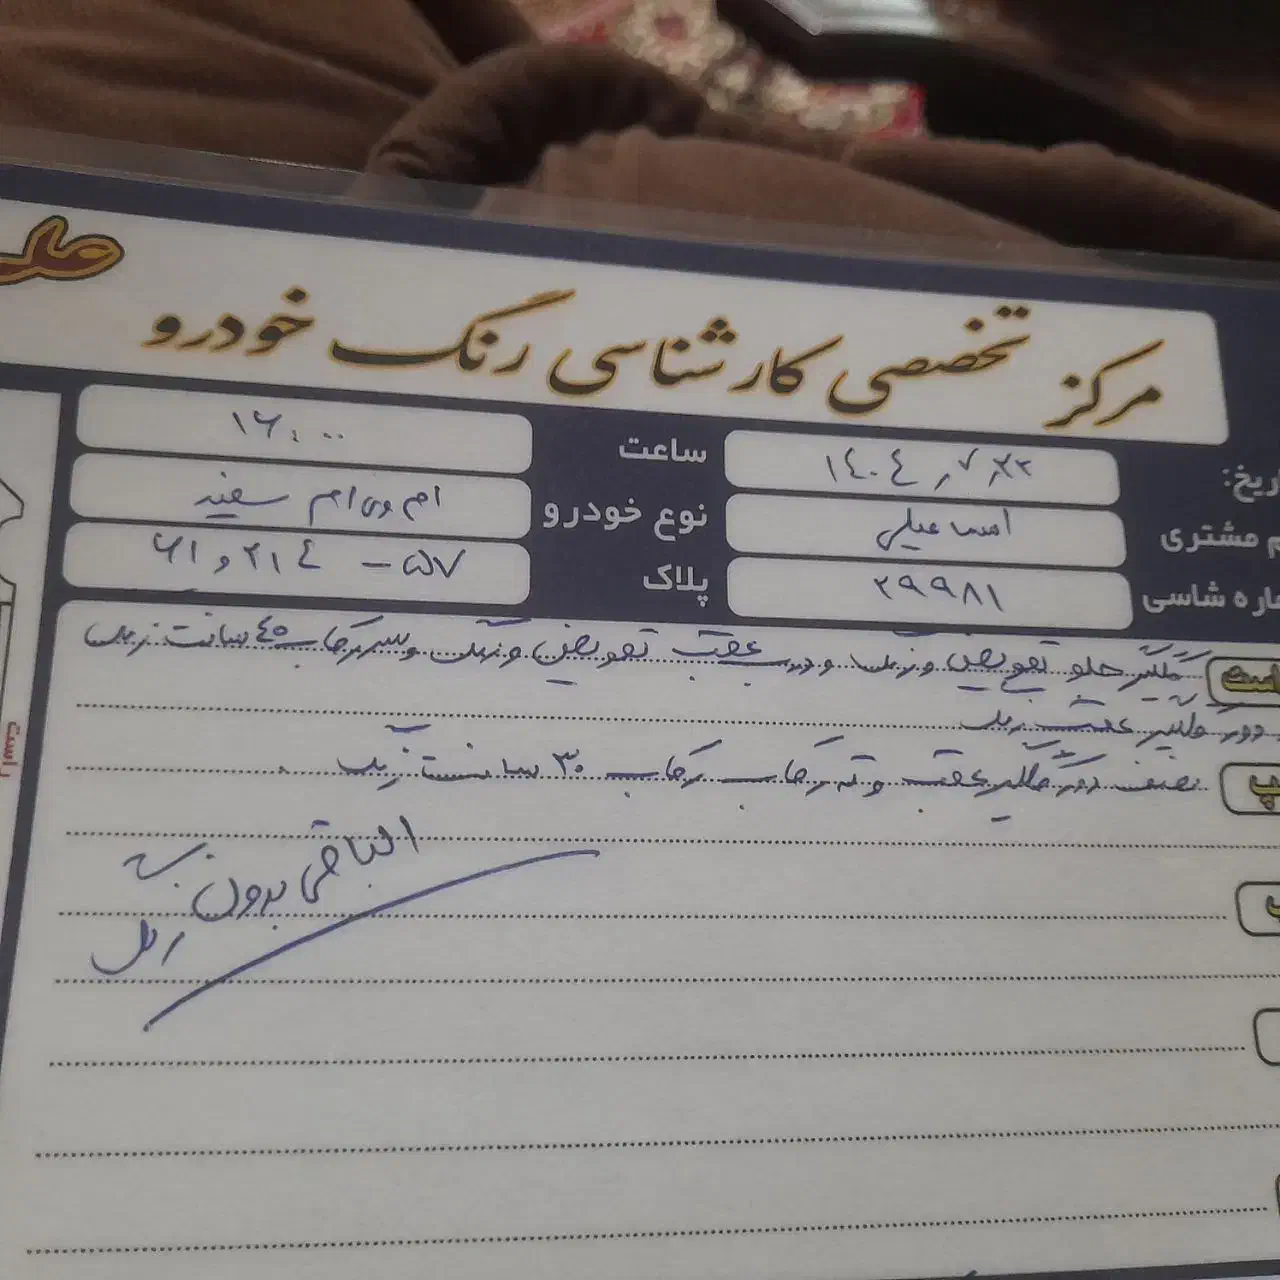 مرکز تخصصی کارشناسی رنگ خودرو
۱٤۰٤٫۷٫۲۲
ساعت ۱۶:۰۰
مشتری اسماعیلی
نوع خودرو ام وی ام سفید
شاسی ۲۹۹۸۱
پلاک ۶۱ و ۲۱٤ - ۵۷
گلگیر جلو تعویض و رنگ و درب عقب تعویض و رنگ و سر رکاب ٤۵ سانت رنگ
دور گلگیر عقب رنگ
نصف دور گلگیر عقب و ته رکاب رکاب ۳۰ سانت رنگ
الباقی بدون رنگ
راست